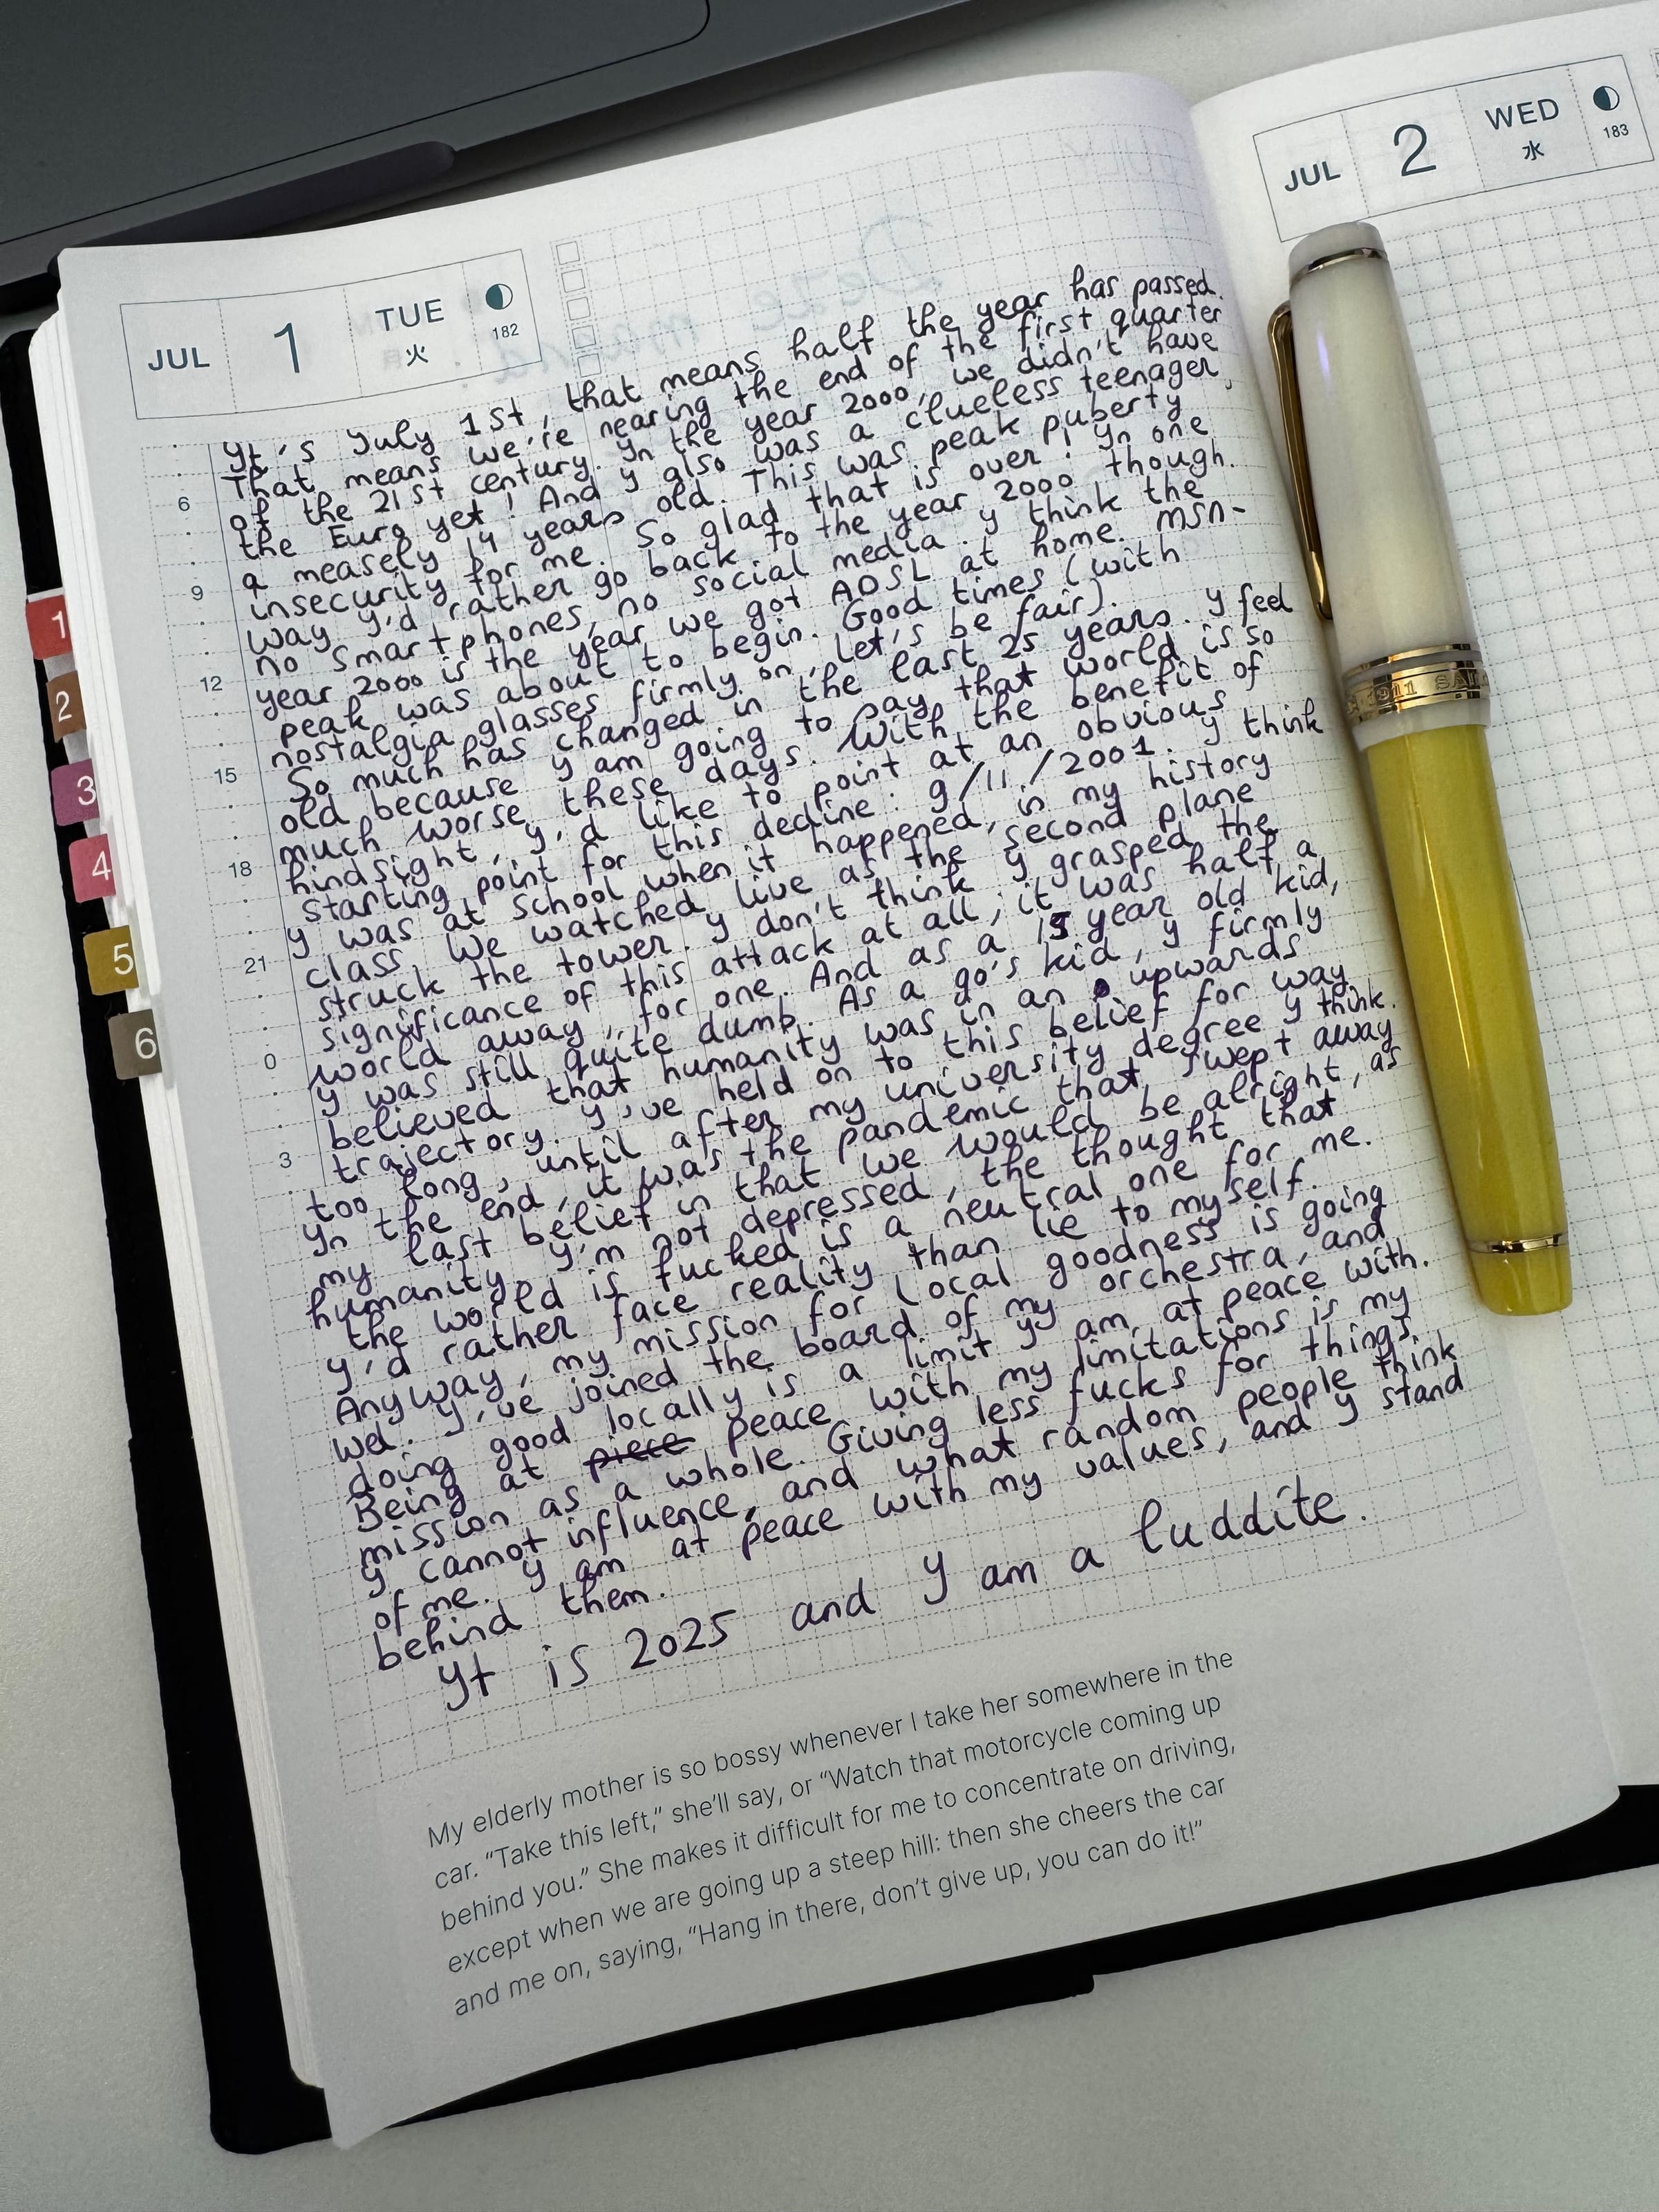 JUL 1 TUE 火 182
It's July 1st, that means half the year has passed.
That means we're nearing the end of the first quarter
of the 21st century. In the year 2000, we didn't have
the Euro yet! And I also was a clueless teenager,
a measely 14 years old. This was peak puberty
insecurity for me. So glad that is over! In one
way I'd rather go back to the year 2000 though.
no smartphones, no social media. I think the
year 2000 is the year we got ADSL at home. MSN-
peak was about to begin. Good times (with
nostalgia glasses firmly on, let's be fair).
So much has changed in the last 25 years. I feel
old because I am going to say that world is so
much worse these days. With the benefit of
hindsight, I'd like to point at an obvious
starting point for this decline: 9/11/2001. I think
I was at school when it happened, in my history
class. We watched live as the second plane
struck the tower. I don't think I grasped the
significance of this attack at all, it was half a
world away, for one. And as a 15 year old kid,
I was still quite dumb. As a 90's kid, I firmly
believed that humanity was in an upwards
trajectory. I've held on to this belief for way
too long, until after my university degree I think.
In the end, it was the pandemic that swept away
my last belief in that we would be alright, as
humanity. I'm not depressed, the thought that
the world is fucked is a neutral one for me.
I'd rather face reality than lie to myself.
Anyway, my mission for local goodness is going
wel. I've joined the board of my orchestra, and
doing good locally is a limit I am at peace with.
Being at piece peace with my limitations is my
mission as a whole. Giving less fucks for things
I cannot influence, and what random people think
of me. I am at peace with my values, and I stand
behind them.
It is 2025 and I am a luddite.
6
9
12
15
18
21
0
3
My elderly mother is so bossy whenever I take her somewhere in the
car. “Take this left,” she’ll say, or “Watch that motorcycle coming up
behind you.” She makes it difficult for me to concentrate on driving,
except when we are going up a steep hill: then she cheers the car
and me on, saying, “Hang in there, don’t give up, you can do it!”
1
2
3
4
5
6
JUL 2 WED 水 183
1911